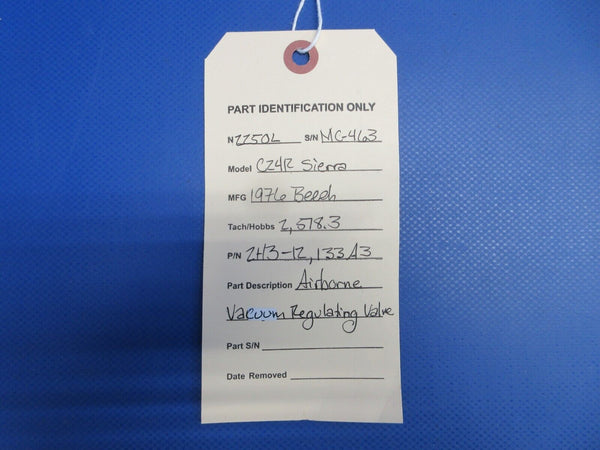 PART IDENTIFICATION ONLY
N 2250L S/N MC-463
Model C24R Sierra
MFG 1976 Beech
Tach/Hobbs 2,578.3
P/N 2H3-12, 133A3
Part Description Airborne
Vacuum Regulating Valve
Part S/N
Date Removed